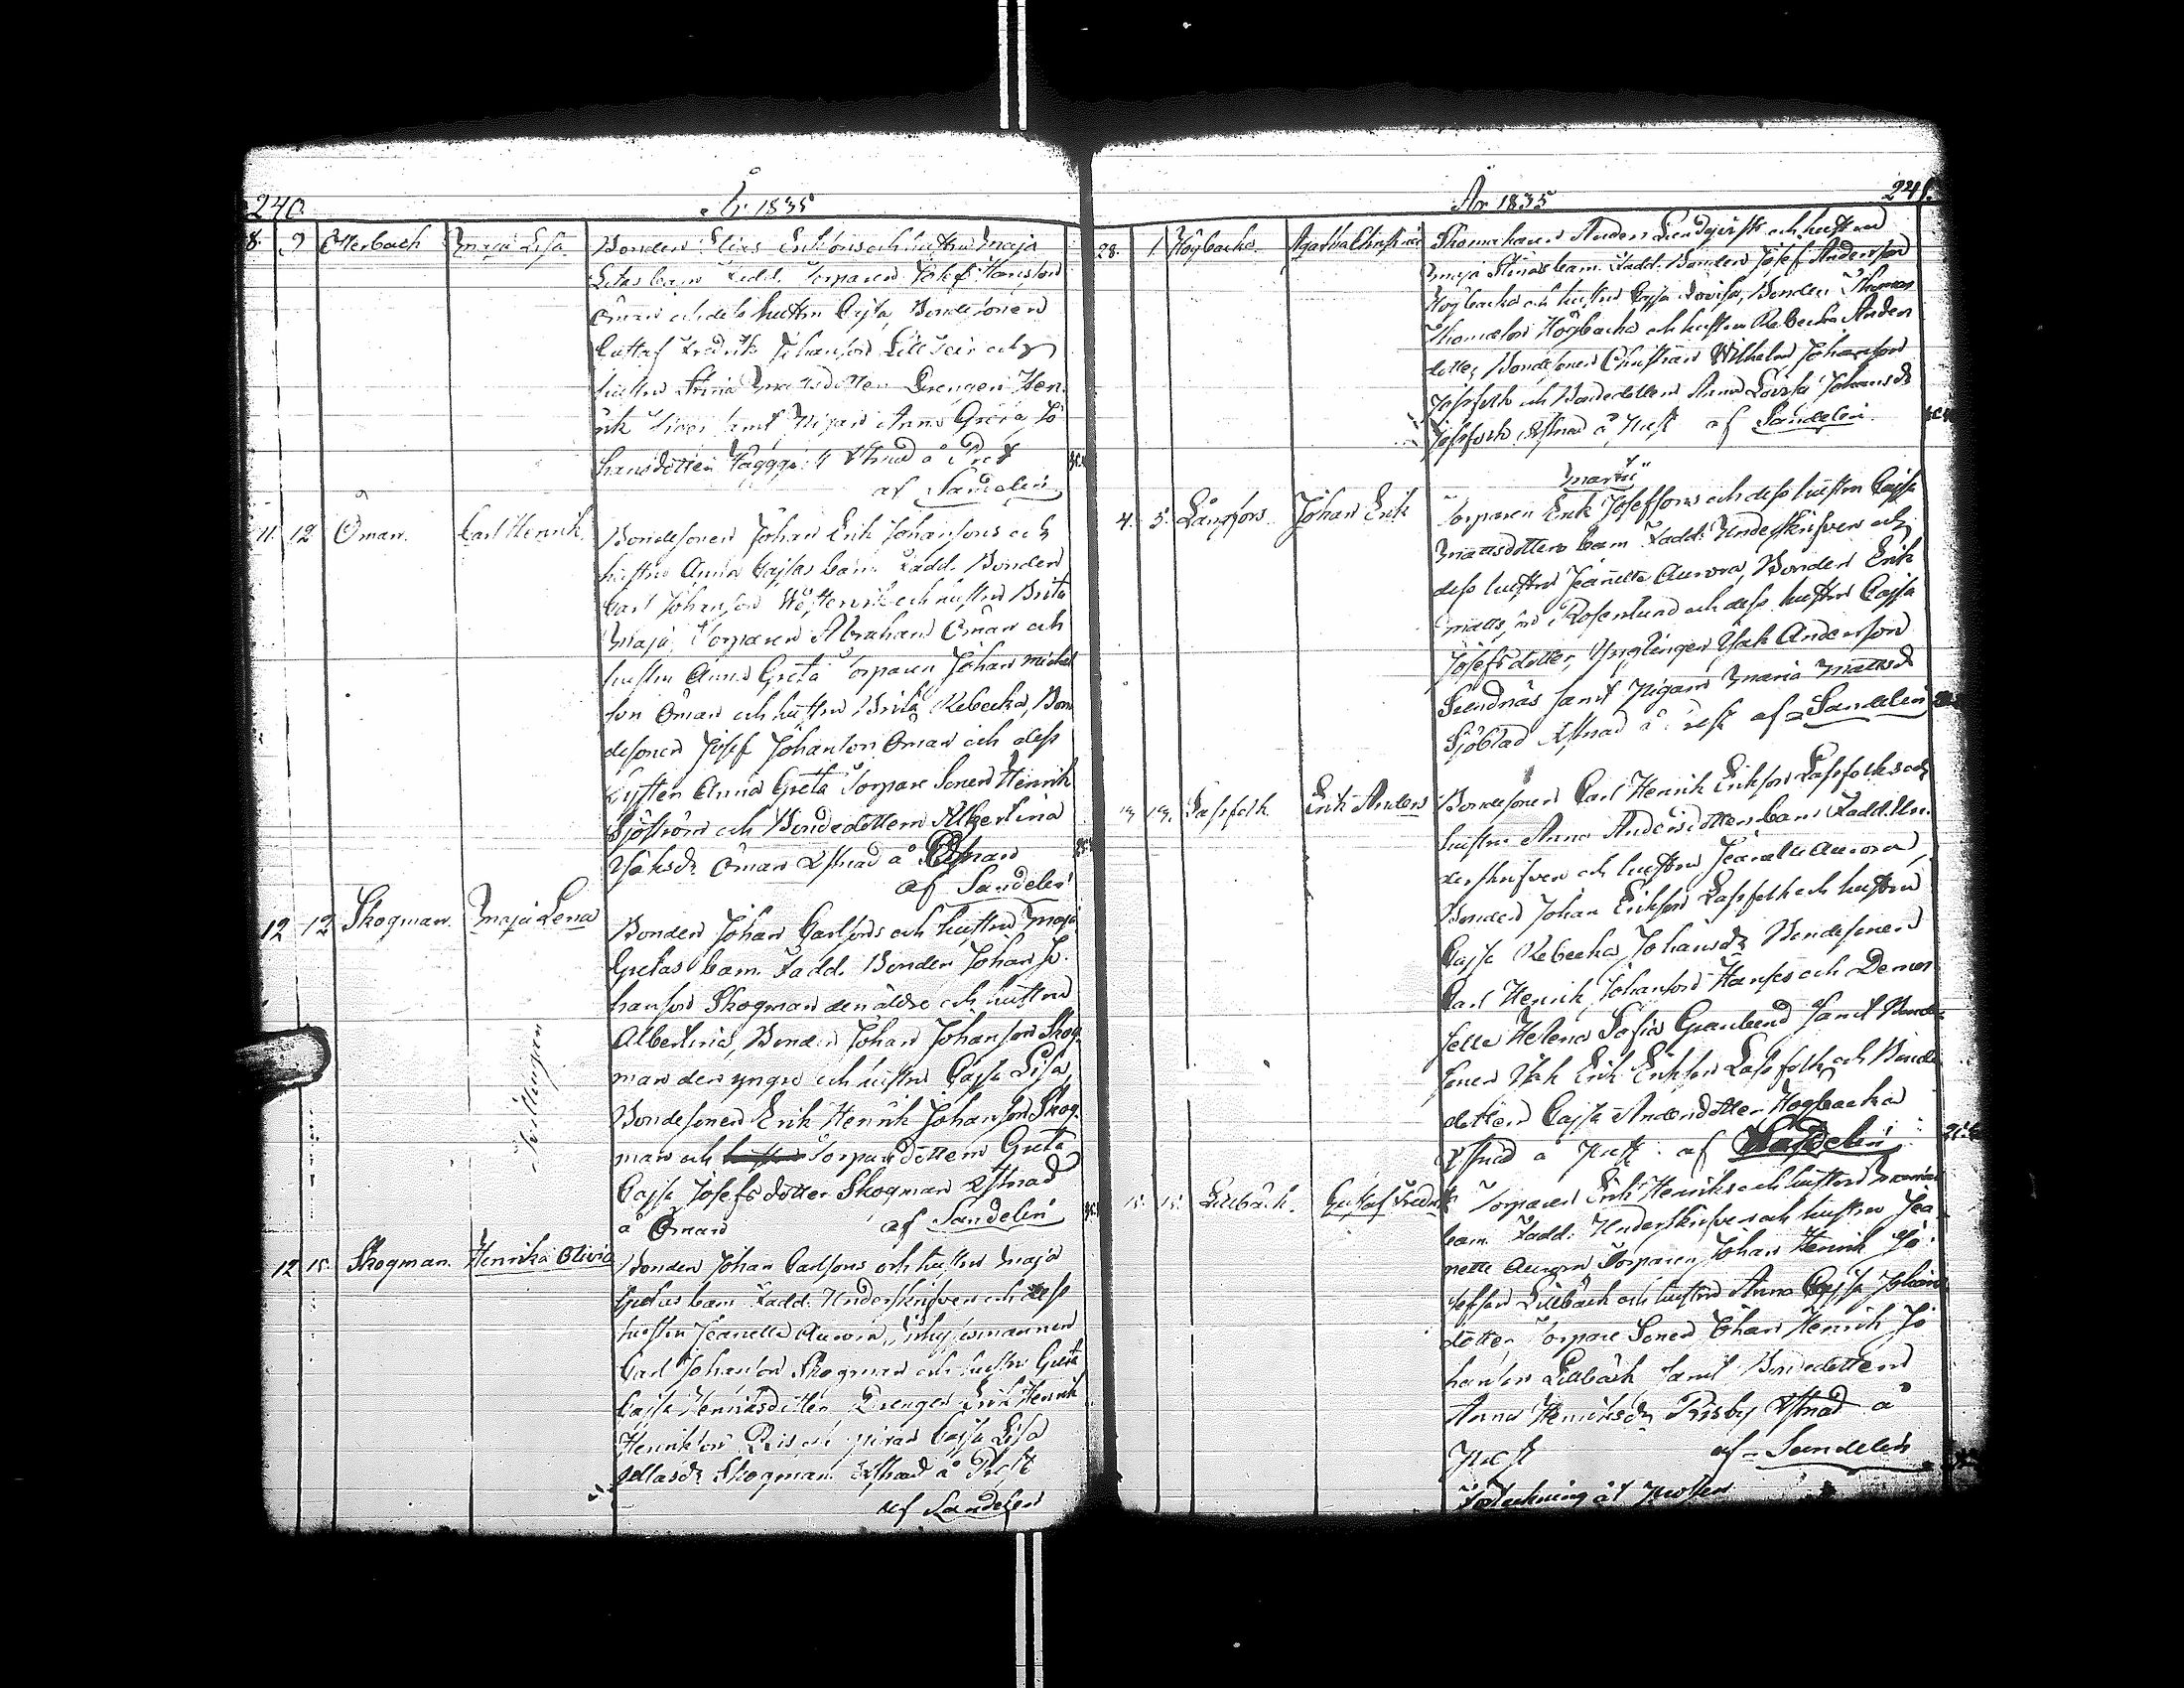 240.
År 1835
8. 9 Åtterbach Maja Lisa Bonden Elias Eriksons och hustru Maja
Lisas barn Fadd. Torparen Josef Hansson
Öman och dess hustru Cajsa, Bondesonen
Gustaf Fredrik Johansson Lill och
hustru Stina Mattsdotter Drengen Hen
rik samt Pigan Anna Greta Jo
hansdotter Xstnad å Prest
af Sandelin
11. 12 Öman. Carl Henrik. Bondesonen Johan Erik Johansons och
hustru Anna Cajsas barn. Fadd. Bonden
Carl Johanson och hustru Brita
Maja, Torparen Abraham Öman och
hustru Anna Greta Torparen Johan Michel
son Öman och hustru Brita Rebecka, Bon
desonen Josef Johanson Öman och dess
Syster Anna Greta Torpare Sonen Henrik
Sjöström och Bondedottern Albertina
Isaksdr Öman Xstnad å Öman
af Sandelin
12 12 Skogman. Maja Lena Bonden Johan Carlsons och hustru Maja
Gretas barn. Fadd. Bonden Johan Jo-
hanson Skogman den äldre och hustru
Albertina, Bonden Johan Johanson Skog
man den yngre och hustru Cajsa Lisa,
Bondesonen Erik Henrik Johanson Skog
man och Torparedottern Greta
Cajsa Josefsdotter Skogman Xstnad
å Öman af Sandelin
Tvillingar
12 15. Skogman. Henrika Olivia Bonden Johan Carlsons och hustru Maja
Gretas barn Fadd. Underskrifven och dess
hustru Jeanette Aurora,
Carl Johanson Skogman och hustru Greta
Cajsa Henriksdotter Drengen Erik Henrik
Henrikson och pigan Cajsa Lisa
Skogman Xstnad å Prest
af Sandelin
År 1835
241.
28. 1 Högbacka Agatha Christina Anders Lundqvists och hustru
Maja Stinas barn. Fadd. Bonden Josef Anderson
Högbacka och hustru Cajsa Lovisa, Bonden Thomas
Thomasson Högbacka och hustru Rebecka Anders
dotter, Bondesonen Christian Wilhelm Johanson
och Bondedottern Anna Lovisa Johansdr
Xstnad å Prest af Sandelin
Martii
4. 5. Långfors. Johan Erik Torparen Erik Josefsons och dess hustru Cajsa
Mattsdotters barn Fadd: Underskrifven och
dess hustru Jeanette Aurora, Bonden Erik
Rosenlund och dess hustru Cajsa
Josefsdotter, Ynglingen Isak Anderson
Sundnäs samt Pigan Maria Mattsdr
Sjöblad Xstnad å Prest af Sandelin
13 13. Lassfolk. Erik Anders Bondesonen Carl Henrik Erikson Lassfolks och
hustru Anna Andersdotters barn Fadd. Un-
derskrifven och hustru Jeanette Aurora,
Bonden Johan Erikson Lassfolk och hustru
Cajsa Rebecka Johansdr Bondesonen
Carl Henrik Johanson och Demoi
selle Helena Sofia Granlund samt Bonde
sonen Isak Erik Erikson Lassfolk och Bonde
dottern Cajsa Andersdotter Högbacka
Xstnad å Prest. af Sandelin
15. 15. Lillbäck. Gustaf Fredrik Torparen Erik Henriks och hustru Marias
barn Fadd: Underskrifven och hustru Jea
nette Aurora Torparen Johan Henrik Jo-
sefson Lillbäck och hustru Anna Cajsa Johans
dotter, Torpare Sonen Johan Henrik Jo
hanson Lillbäck samt Bondedottern
Anna Henriksdr Risby Xstnad å
Prest af Sandelin
Förteckning åt Prosten